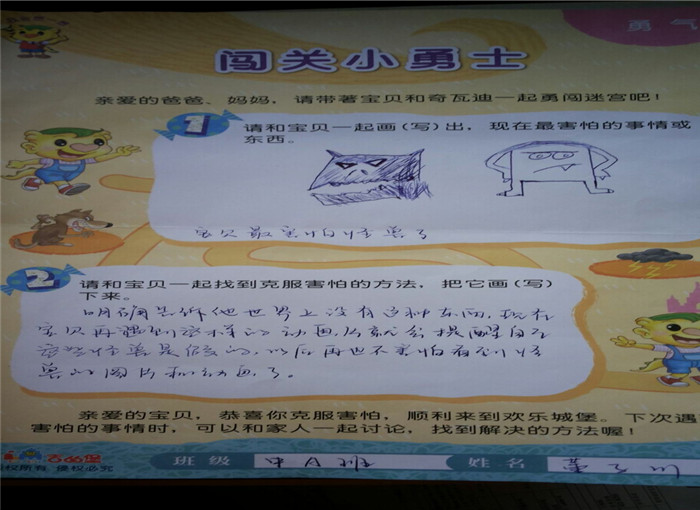 勇气
闯关小勇士
亲爱的爸爸、妈妈，请带著宝贝和奇瓦迪一起勇闯迷宫吧！
1 请和宝贝一起画(写)出，现在最害怕的事情或
东西。
宝贝最害怕怪兽了
2 请和宝贝一起找到克服害怕的方法，把它画(写)
下来。
明确告诉他世界上没有这种东西，现在
宝贝再碰到这样的动画片就会提醒自己
这些怪兽是假的，以后再也不害怕看到怪
兽的图片和动画了。
亲爱的宝贝，恭喜你克服害怕，顺利来到欢乐城堡。下次遇
害怕的事情时，可以和家人一起讨论，找到解决的方法喔！
版权所有 侵权必究
班级 中A班 姓名